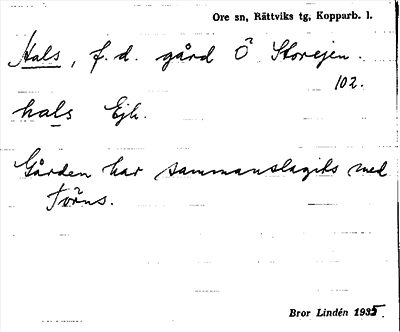 Ore sn, Rättviks tg, Kopparb. l.
Hals, f. d. gård Ö Storejen.
102.
hals Ejh.
Gården har sammanslagits med
Törns.
Bror Lindén 1935.